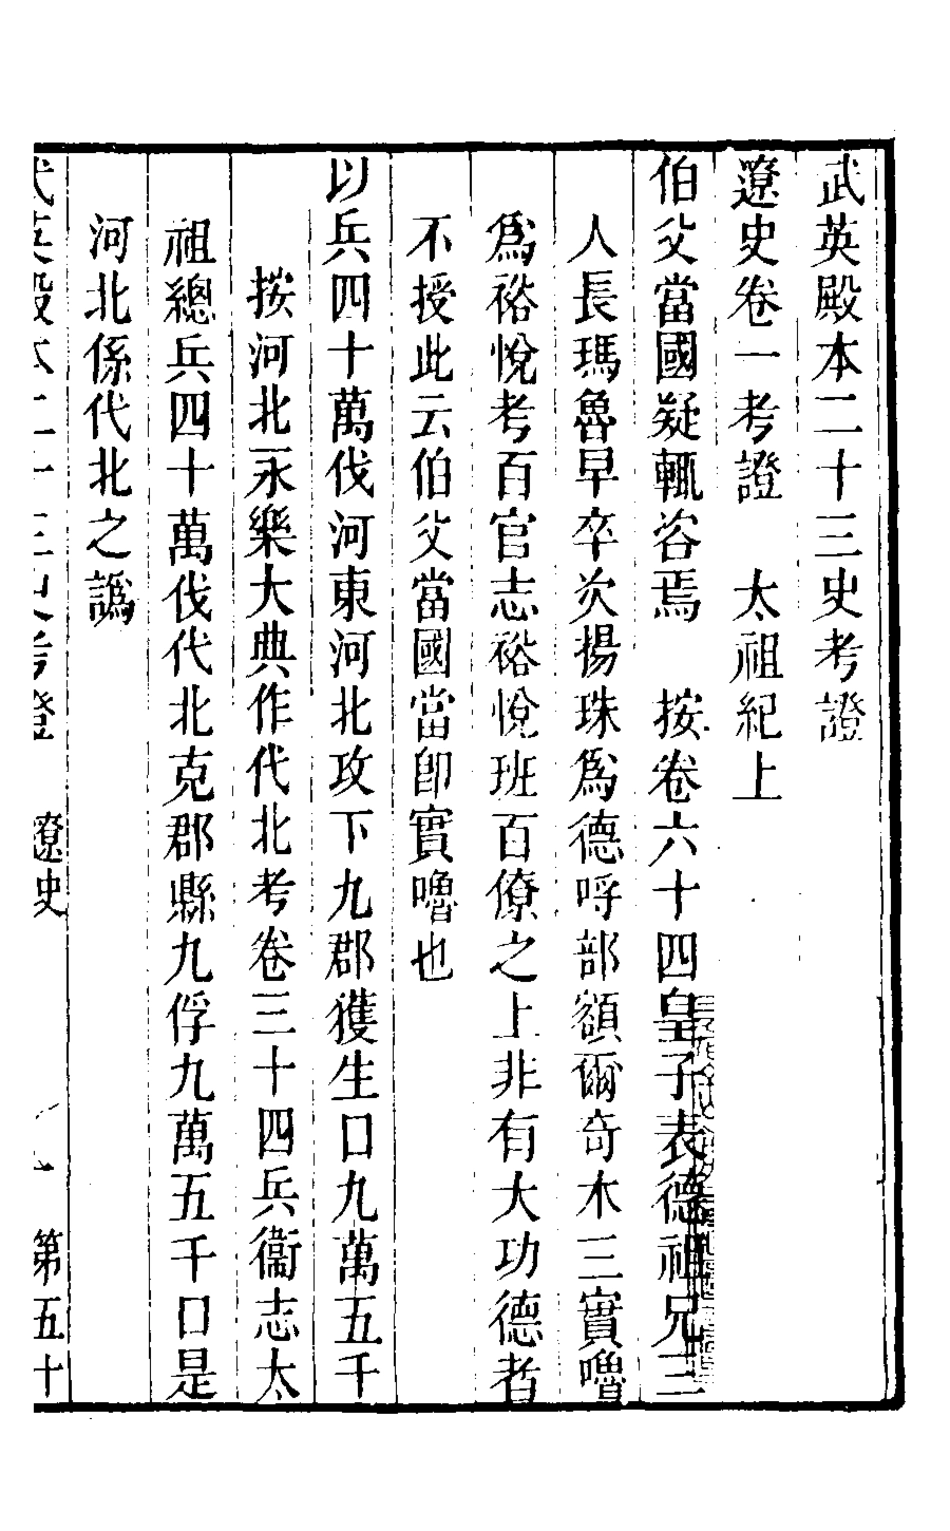 武英殿本二十三史考證
遼史卷一考證　太祖紀上
伯父當國疑輒咨焉　按卷六十四皇子表德祖兄三
人長瑪魯早卒次揚珠爲德哷部額爾奇木三實嚕
爲裕悅考百官志裕悅班百僚之上非有大功德者
不授此云伯父當國當卽實嚕也
以兵四十萬伐河東河北攻下九郡獲生口九萬五千
按河北永樂大典作代北考卷三十四兵衞志太
祖總兵四十萬伐代北克郡縣九俘九萬五千口是
河北係代北之譌
武英殿本二十三史考證　遼史　第五十